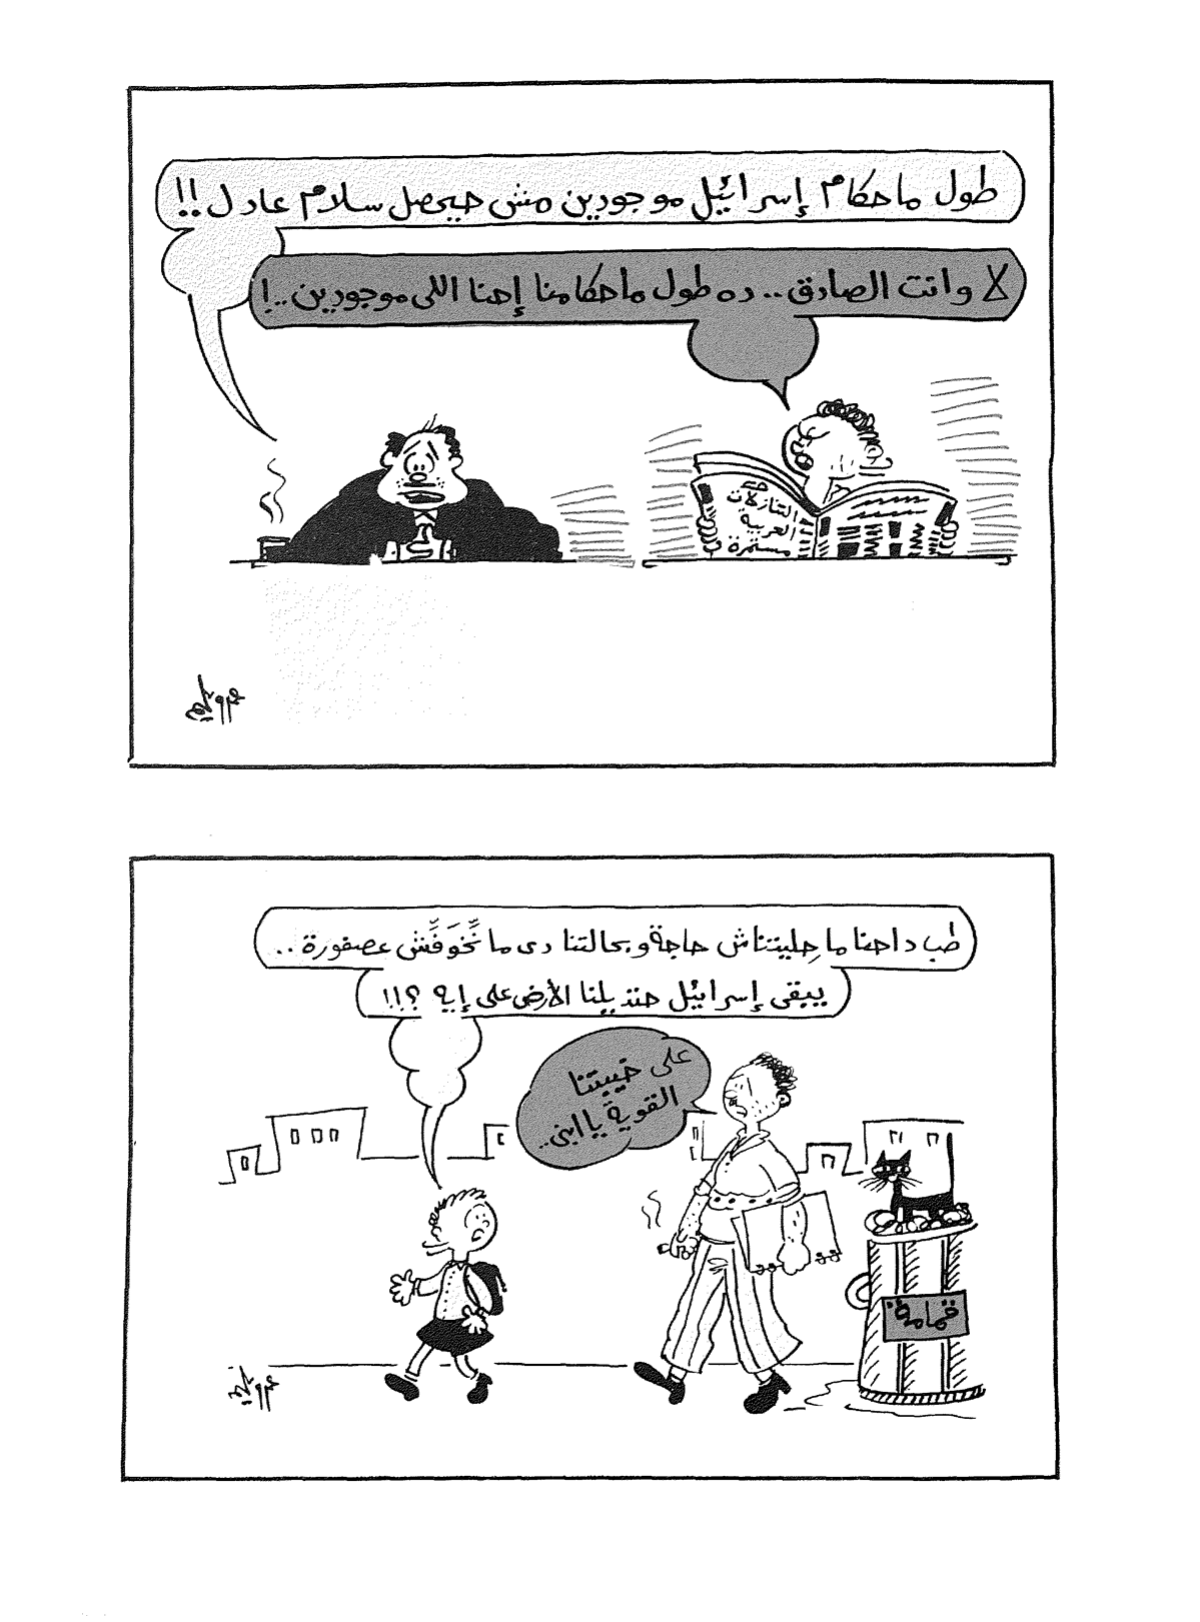 طول ما حكام إسرائيل موجودين مش حيحصل سلام عادل!!
لا وانت الصادق.. ده طول ما حكامنا إحنا اللى موجودين..!
التنازلات
العربية
مستمرة
عمرو سليم
طب داحنا ما حِليتناش حاجة وبحالتنا دى ما نخَوِّفِّش عصفورة..
يبقى إسرائيل حتديلنا الأرض على إيه ؟!!
على خيبتنا
القوية يا ابنى..
قمامة
عمرو سليم